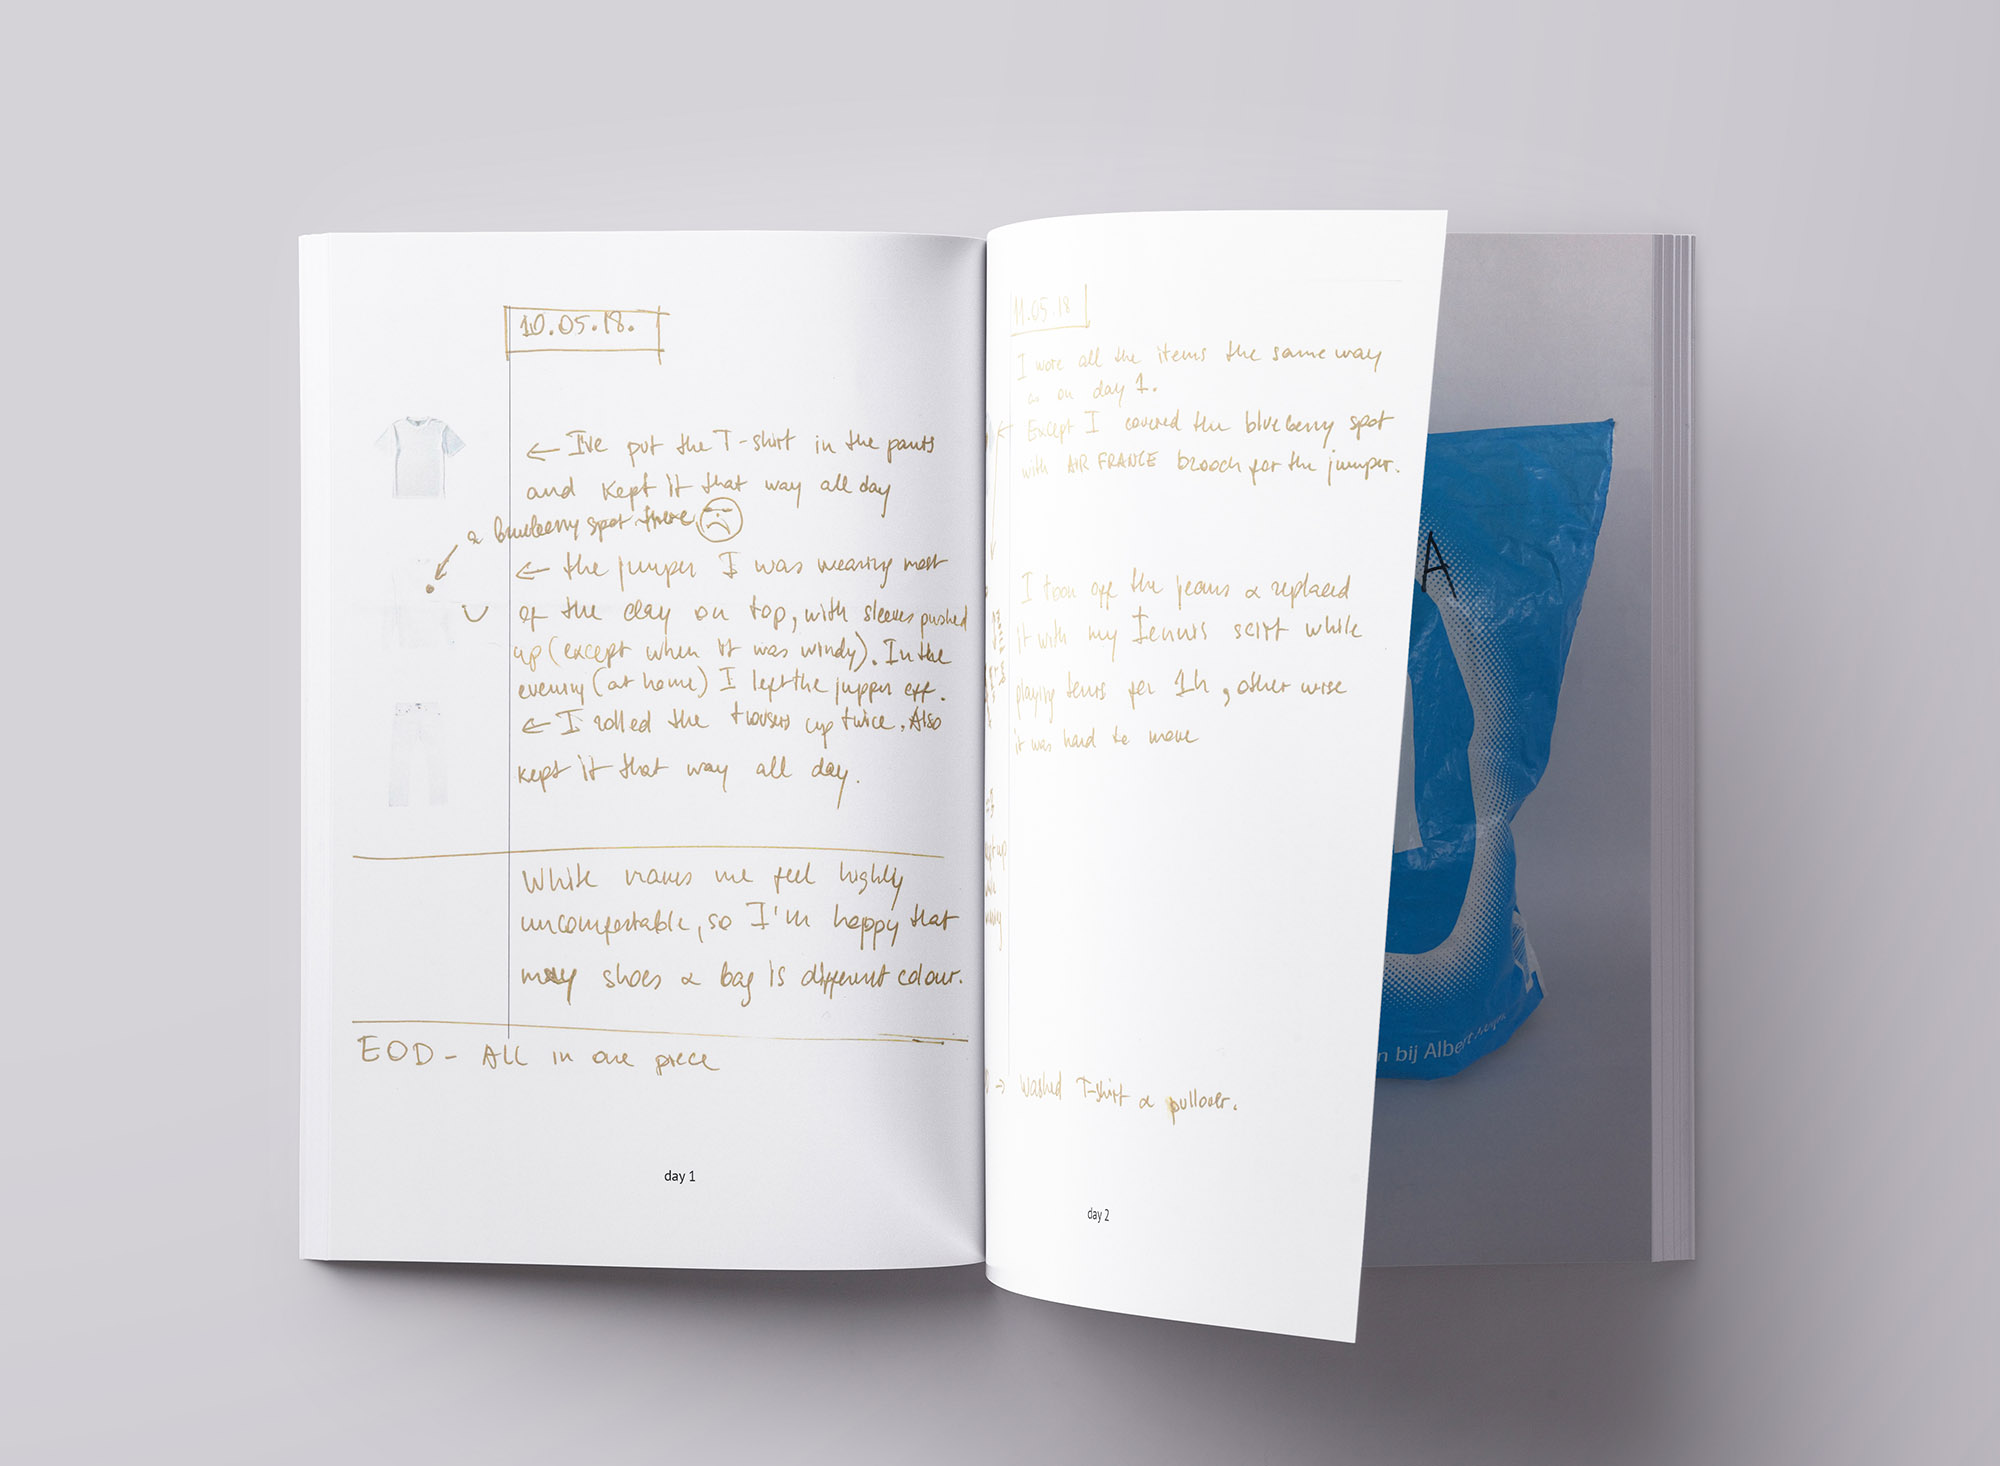 10.05.18.
← I've put the T-shirt in the pants
and kept it that way all day
a blueberry spot there
← the jumper I was wearing most
of the day on top, with sleeves pushed
up (except when it was windy). In the
evening (at home) I left the jupper off.
← I rolled the trousers up twice. Also
kept it that way all day.
White makes me feel highly
uncomfortable, so I'm happy that
my shoes & bag is different colour.
EOD - All in one piece
day 1
11.05.18
I wore all the items the same way
as on day 1.
Except I covered the blueberry spot
with AIR FRANCE brooch for the jumper.
I took off the jeans & replaced
it with my tennis scirt while
playing tenis for 1h, other wise
it was hard to move
→ washed T-shirt & pullover.
day 2
A
n bij Albert